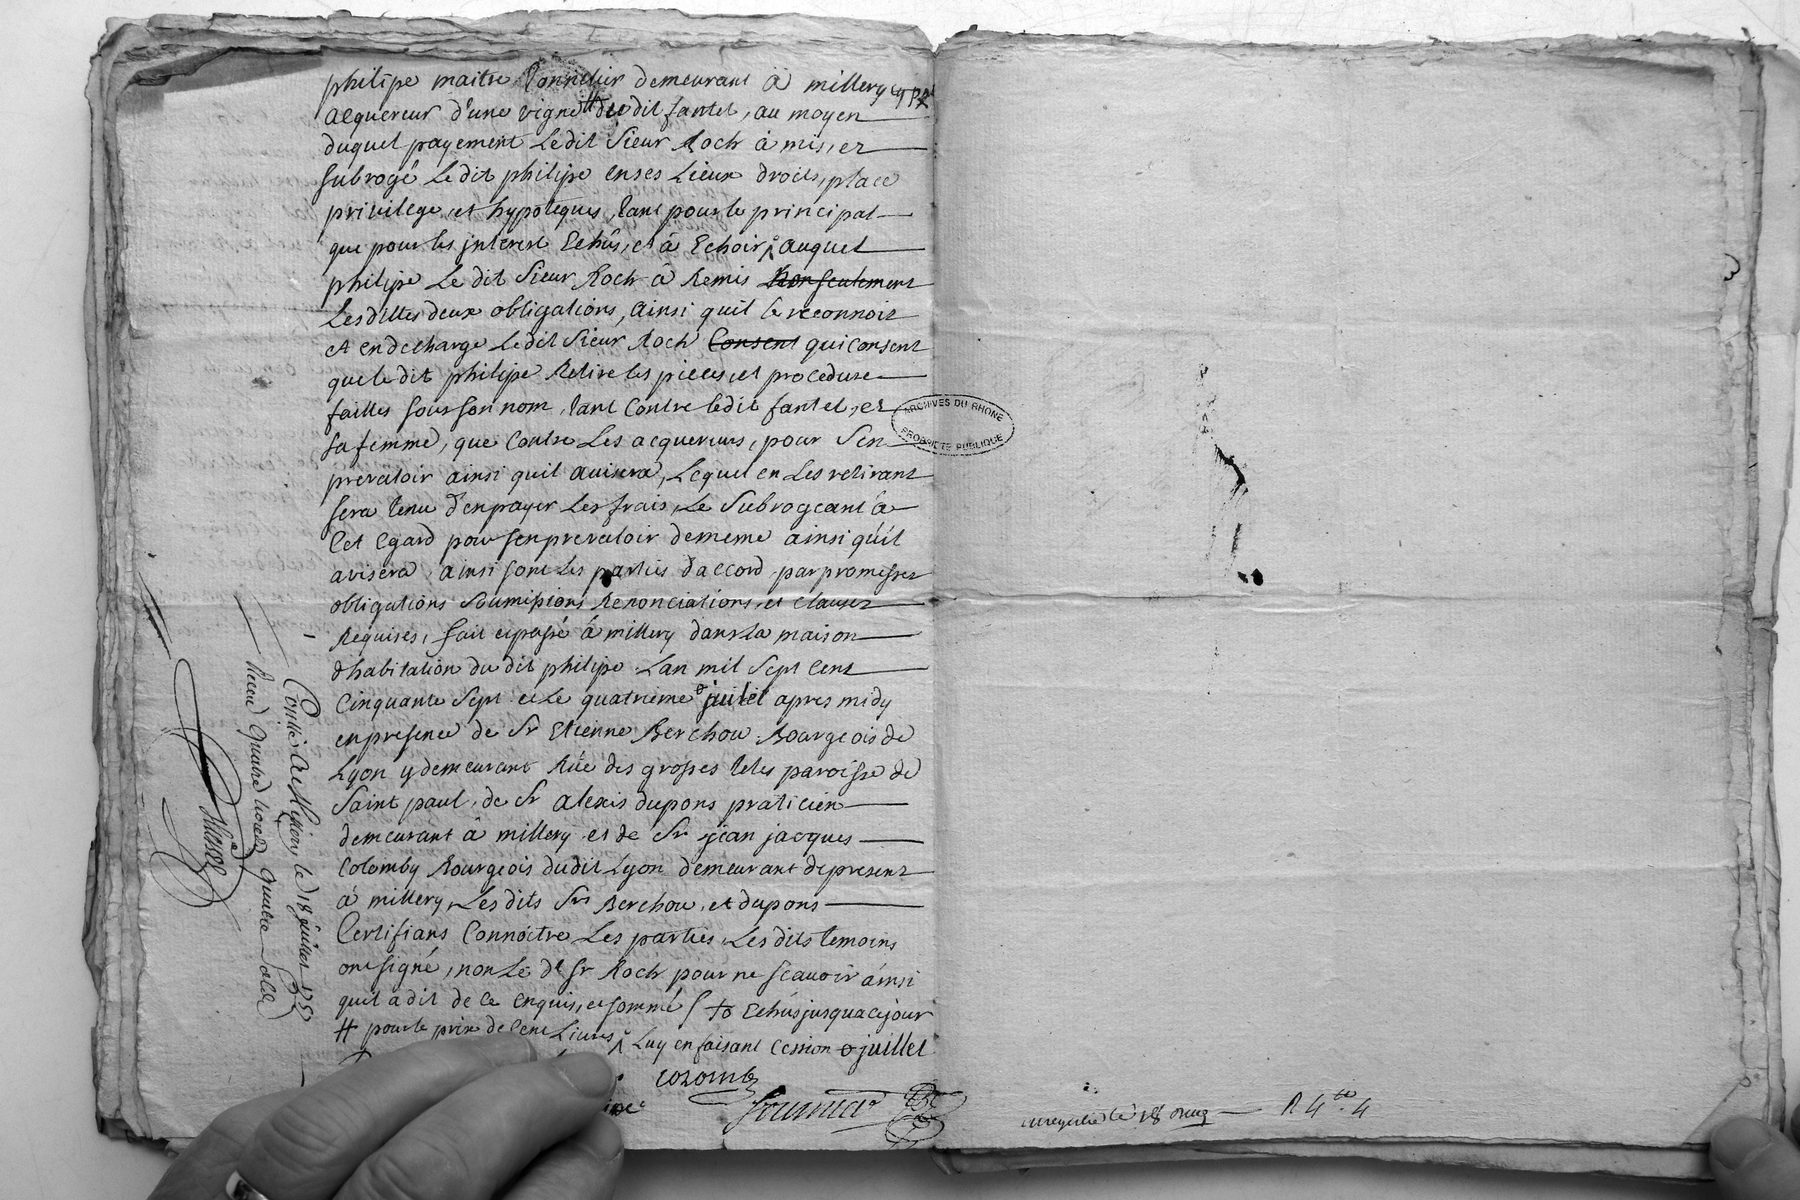 philipe maitre tonnelier demeurant a millery
acquereur d'une vigne # du dit fantet, au moyen
duquel payement Ledit Sieur Roch à mis, et
subrogé Le dit philipe en ses Lieux droits, place
privilege, et hypoteques, tant pour le principal
que pour les jnterest Echûs, et à Echoir, auquel
philipe Le dit Sieur Roch à Remis Non seulement
Lesdittes deux obligations, ainsi quil le reconnoit
et en decharge Ledit Sieur Roch Consent qui consent
que le dit philipe Retire les pieces, et procedure
faittes sous son nom, tant Contre ledit fantet, et
sa femme, que Contre Les acquereurs, pour s'en
prevaloir ainsi quil avisera, Lequel en Les retirant
sera tenu d'en payer Les frais, Le Subrogeant à
Cet Egard pour s'en prevaloir de meme ainsi qu'il
avisera, ainsi sont Les parties d'accord par promesses
obligations Soumissions Renonciations, et clauses
Requises, fait et passé à millery dans La maison
d'habitation du dit philipe Lan mil Sept Cent
Cinquante Sept et Le quatrieme juilet apres midy
en presence de Sr Etienne Berchou Bourgeois de
Lyon y demeurant Rüe des grosses tetes paroisse de
Saint paul, de Sr alexis dupons praticien
demeurant à millery et de Sr jean jacques
Colomby Bourgeois dudit Lyon demeurant de present
à millery, Les dits Srs Berchou, et dupons
Certifians Connoître Les parties, Les dits temoins
ont signé, non Le dt Sr Roch pour ne scavoir ainsi
quil a dit de ce enquis, et sommé Echûs jusqua ce jour
# pour le prix de Cent Livres Luy en faisant Cession juillet
colomby
Controllé a Millery le 18 juillet 1757
Receu quatre livres quatre sols
ARCHIVES DU RHONE
PROPRIETE PUBLIQUE
R 4 4